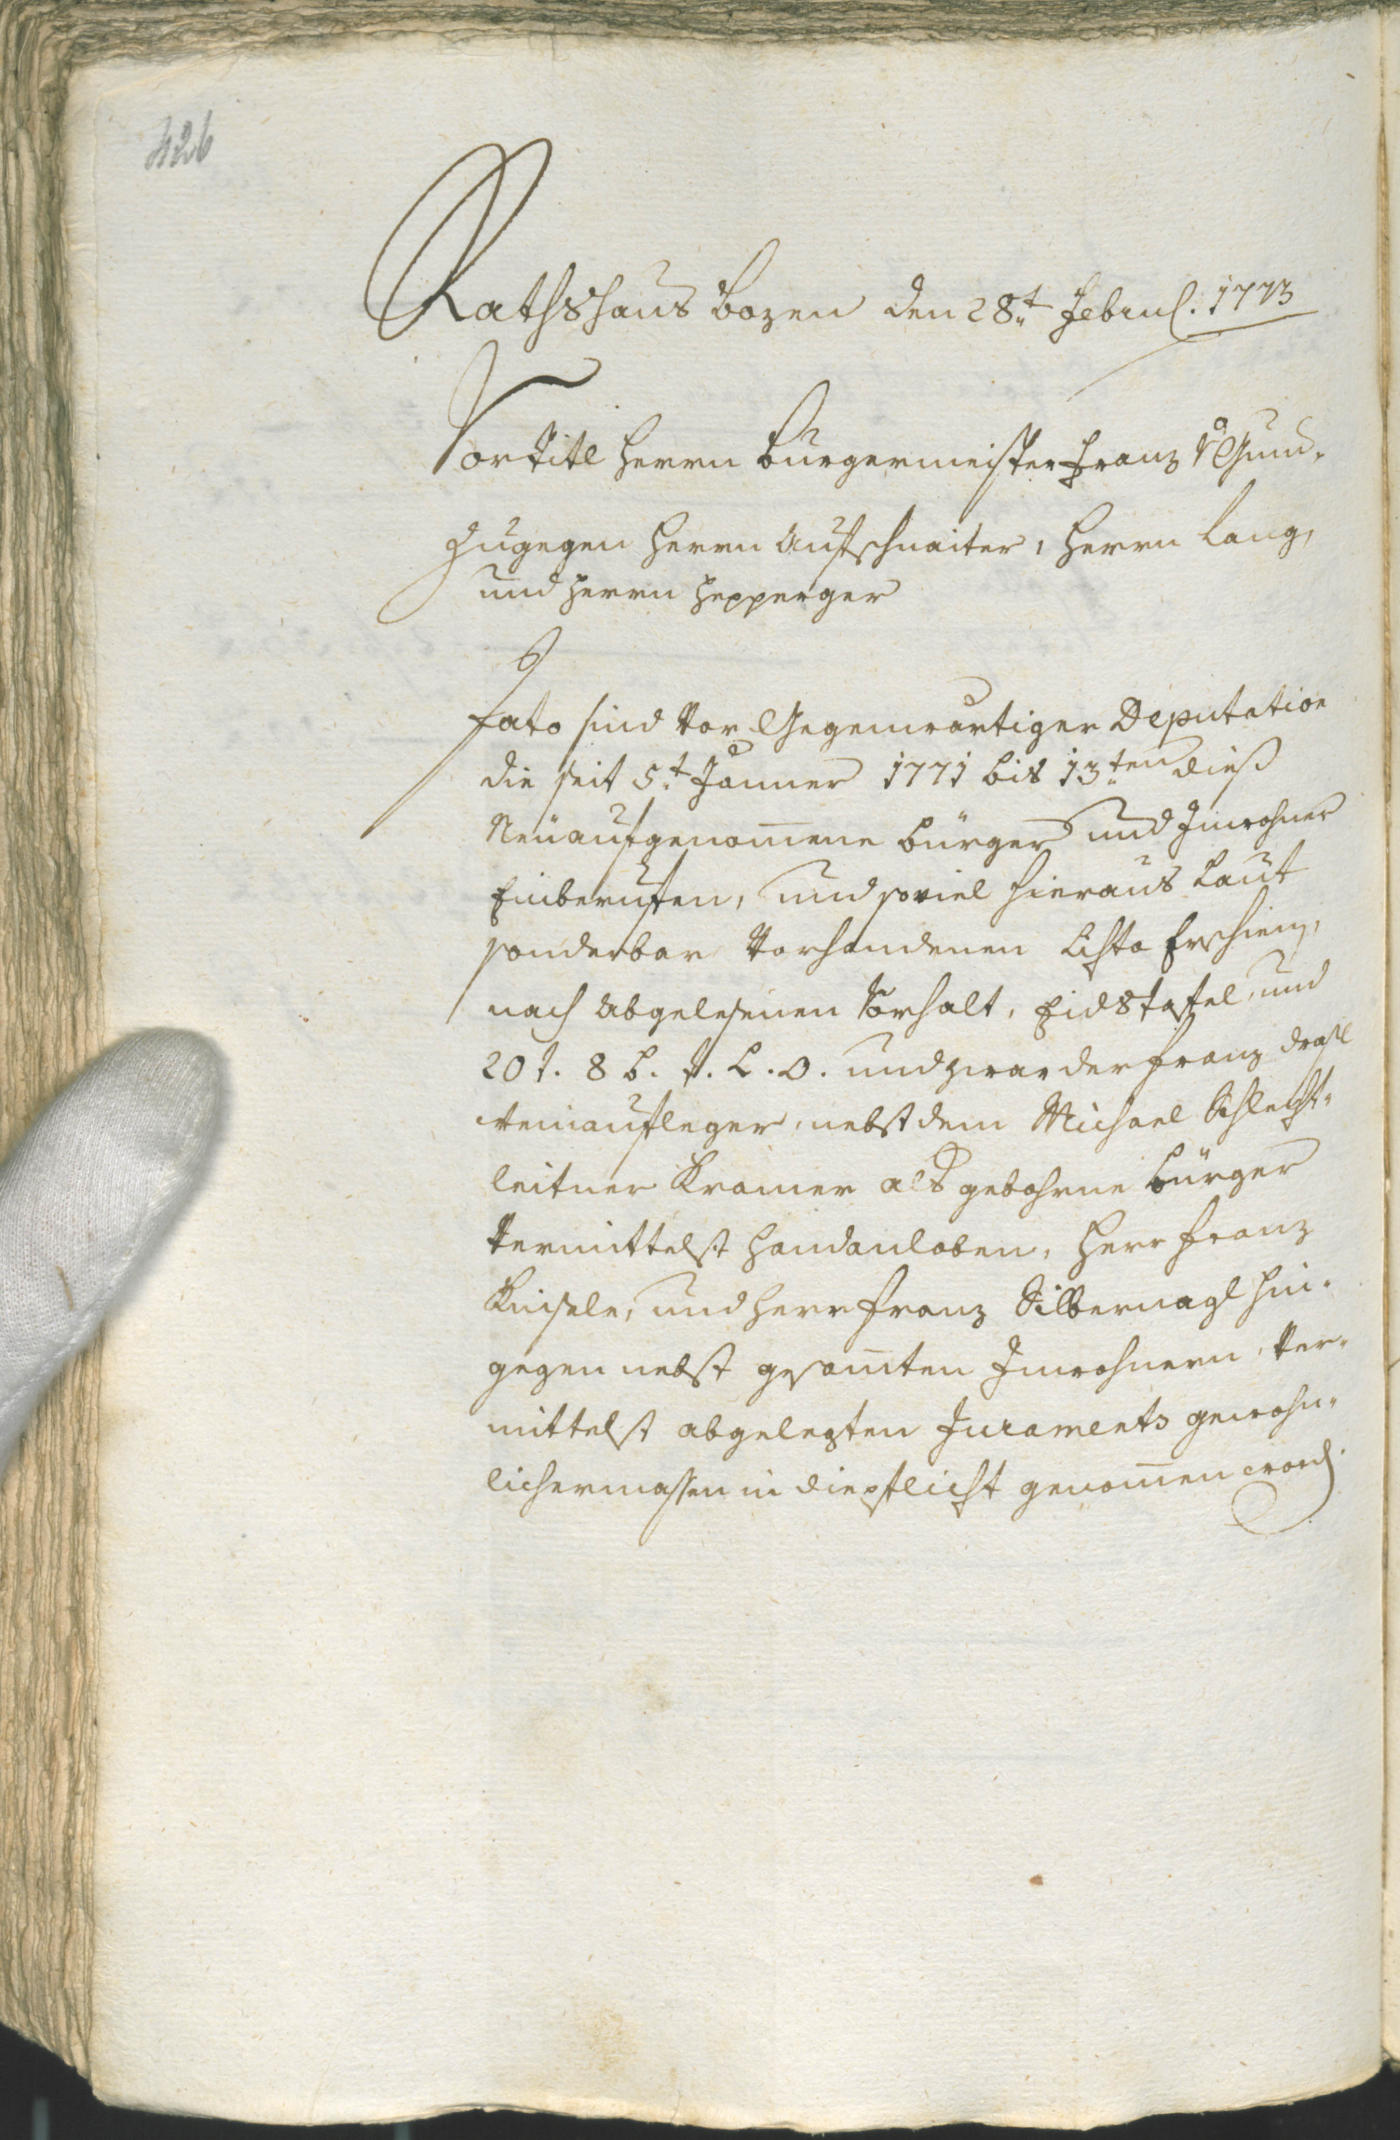 426
Rathshaus Bozen den 28.t Februl. 1773
Vor Titl Herrn Burgermeister Franz v Gum¬
Zugegen Herrn Aufschnaiter, Herrn Lang,
und Herrn Hepperger
Hato sind vor Gegenwärtiger Deputation
die seit 5.t Jänner 1771 bis 13.ten dieß
Neüaufgenom̅ene Bürger und Inwohner
Einberufen, und soviel hieraus Laut
sonderbar vorhandenen Lista Erschinen,
nach abgelesenen Vorhalt, Eidstafel und
20 t. 8 b. t. L. O. und zwar der Franz
Weinaufleger, nebst dem Michael Schlecht¬
leitner Kramer als gebohrne Bürger
Vermittelst Handanloben, Herr Franz
Knisele, und Herr Franz Silbernagl hin¬
gegen nebst gesam̅ten Inwohnern ver¬
mittelst abgelegten Juraments gewohn¬
lichermassen in die Pflicht genom̅en word.